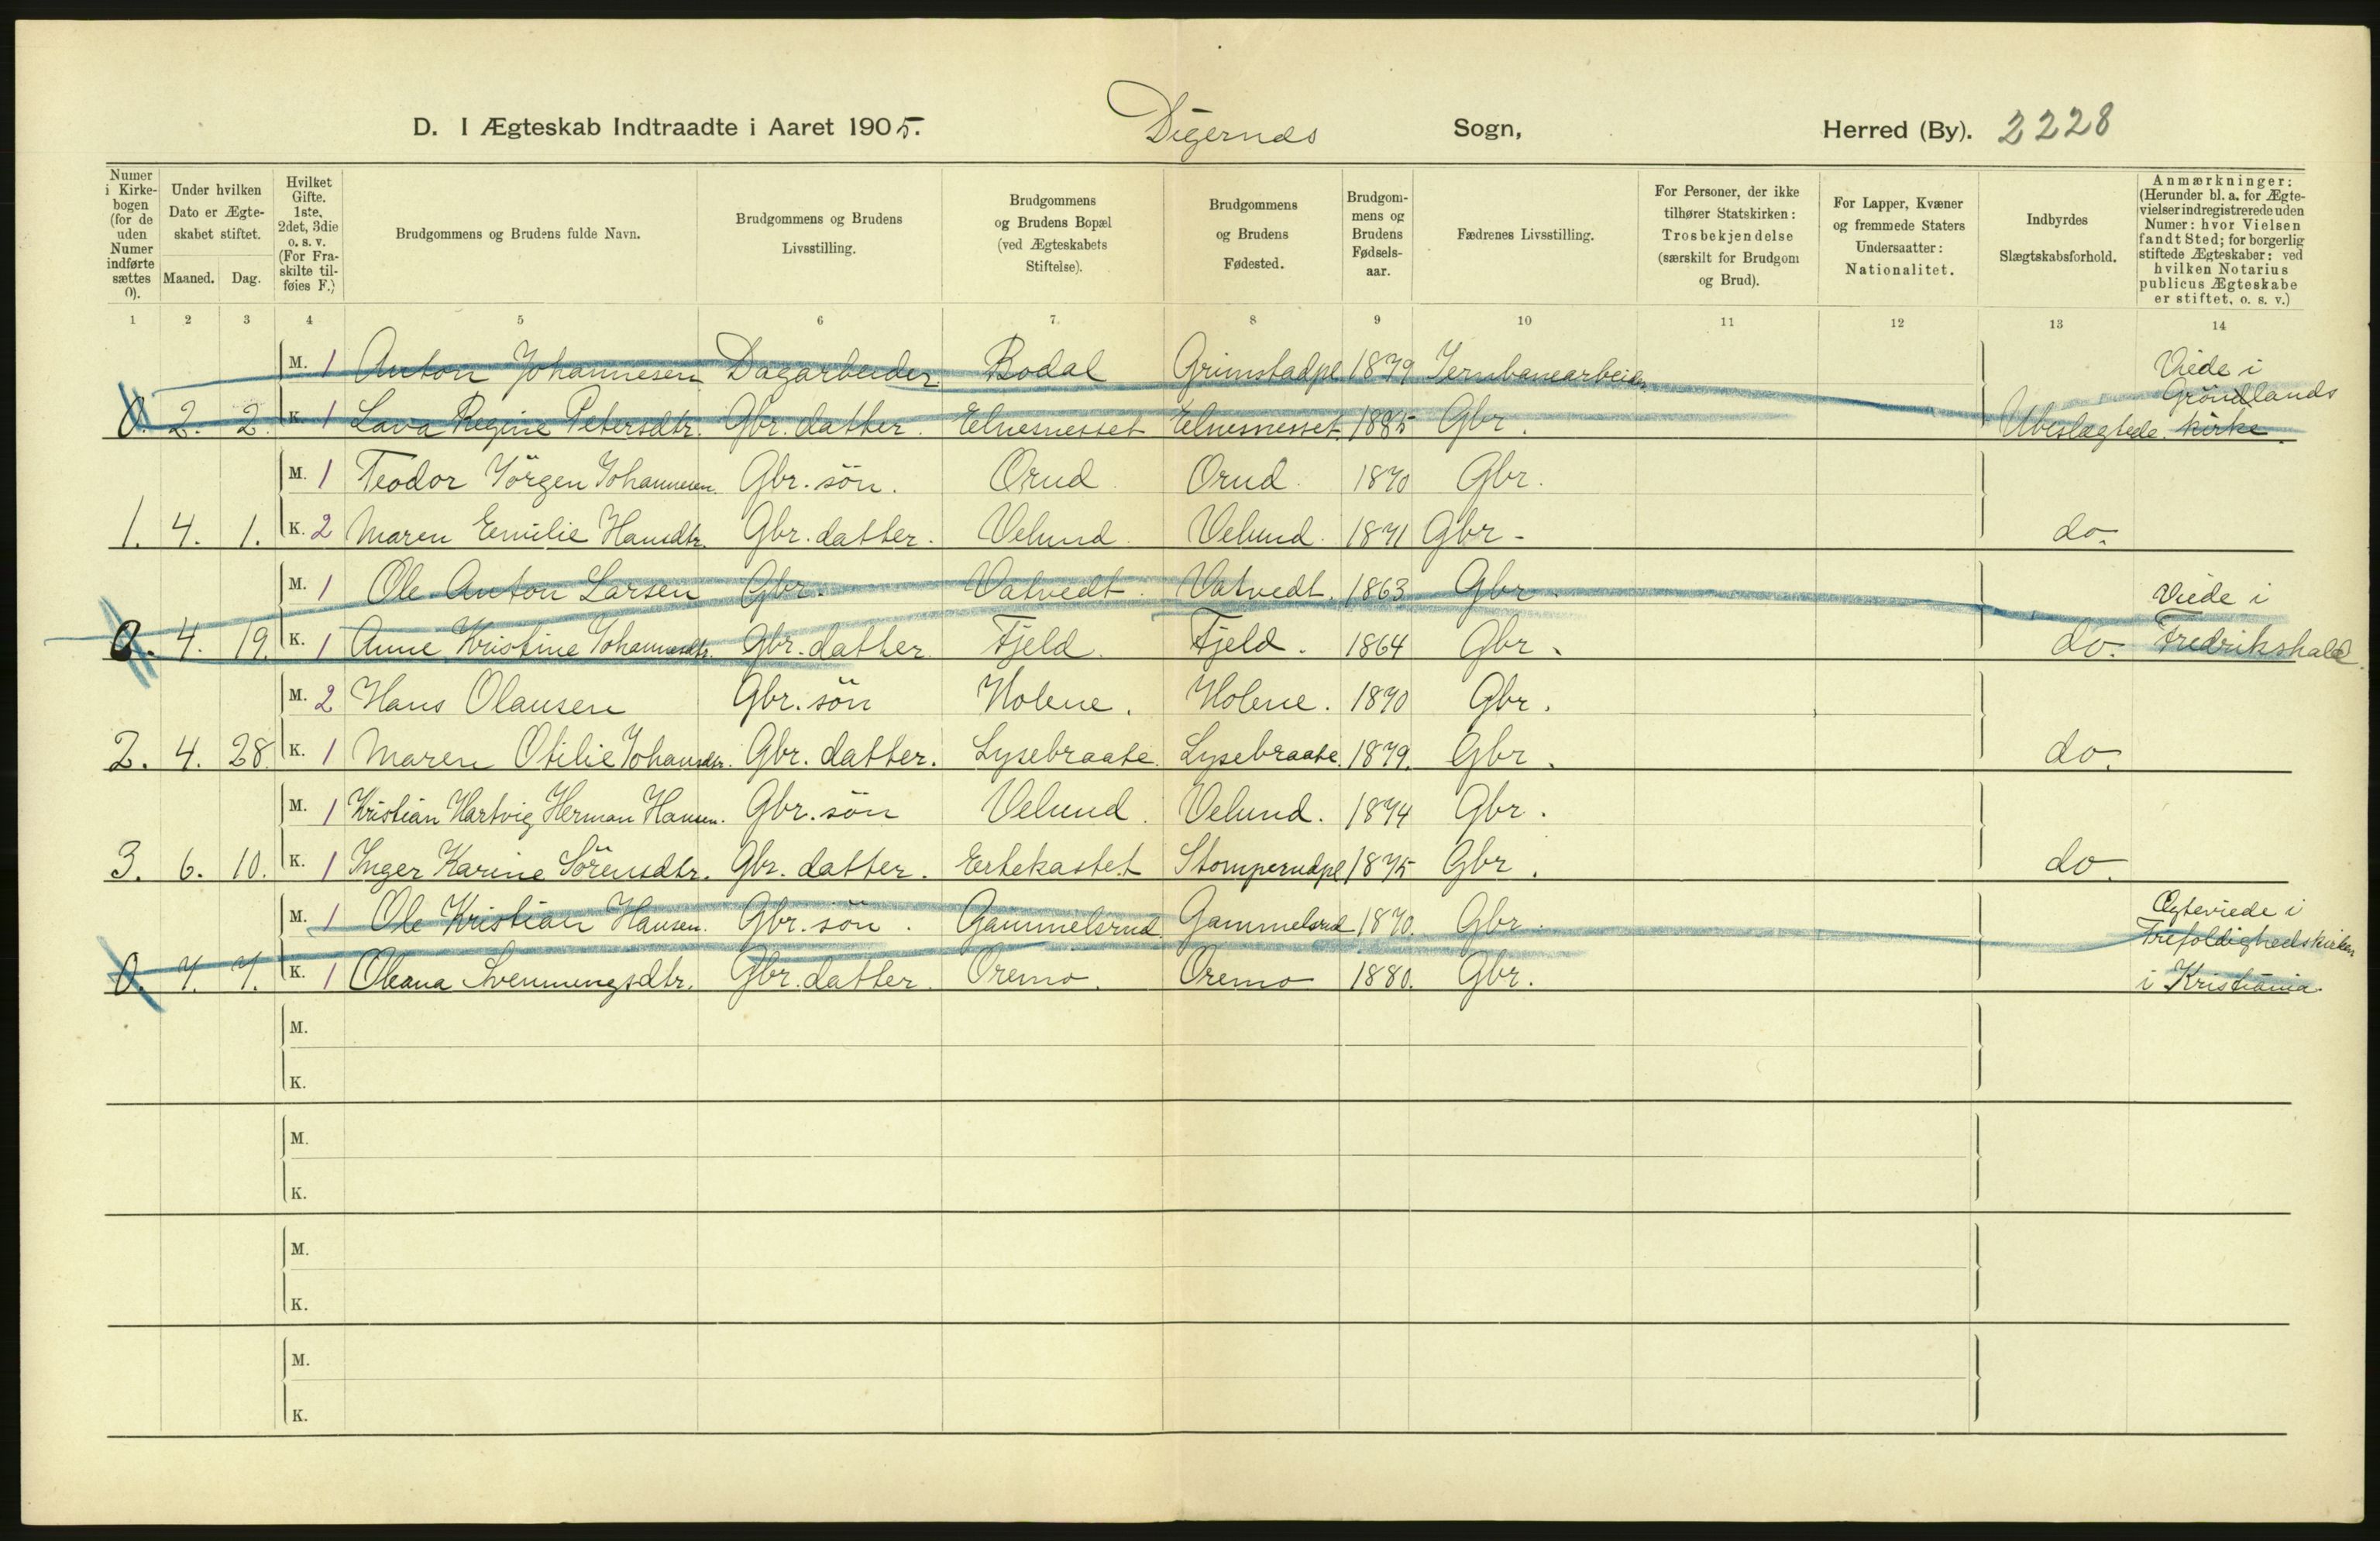 D. I Ægteskab Indtraadte i Aaret 1905. Digernæs Sogn, Herred (By). 2228
Numer i Kirkebogen (for de uden Numer indførte sættes 0).
Under hvilken Dato er Ægteskabet stiftet.
Maaned. Dag.
Hvilket Gifte. 1ste, 2det, 3die o. s. v. (For Fraskilte tilføies F.)
Brudgommens og Brudens fulde Navn.
Brudgommens og Brudens Livsstilling.
Brudgommens og Brudens Bopæl (ved Ægteskabets Stiftelse).
Brudgommens og Brudens Fødested.
Brudgommens og Brudens Fødselsaar.
Fædrenes Livsstilling.
For Personer, der ikke tilhører Statskirken: Trosbekjendelse (særskilt for Brudgom og Brud).
For Lapper, Kvæner og fremmede Staters Undersaatter: Nationalitet.
Indbyrdes Slægtskabsforhold.
Anmærkninger: (Herunder bl. a. for Ægtevielser indregistrerede uden Numer: hvor Vielsen fandt Sted; for borgerlig stiftede Ægteskaber: ved hvilken Notarius publicus Ægteskabe er stiftet, o. s. v.)
1 2 3 4 5 6 7 8 9 10 11 12 13 14
M. 1 Anton Johannesen Dagarbeider Bodal Grimstadpl 1879 Jernbanearbeider Viede i
Grönlands
0. 2. 2. K. 1 Lava Regine Petersdtr. Gbr. datter. Elnesnesset Elnesnesset. 1885 Gbr. Ubeslægtede. kirke.
M. 1 Teodor Jörgen Johannesen. Gbr. sön. Orud. Orud. 1870 Gbr.
1. 4. 1. K. 2 Maren Emilie Hansdtr. Gbr. datter. Velund. Velund. 1871 Gbr - do.
M. 1 Ole Anton Larsen Gbr. Vatvedt. Vatvedt. 1863 Gbr. Viede i
0. 4. 19. K. 1 Anne Kristine Johannesdtr. Gbr. datter Fjeld. Fjeld. 1864 Gbr. do. Fredrikshald.
M. 2 Hans Olausen Gbr. sön Holene. Holene. 1870 Gbr.
2. 4. 28. K. 1 Maren Otilie Johansdtr. Gbr. datter. Lysebraate. Lysebraate. 1879. Gbr. do.
M. 1 Kristian Hartvig Herman Hansen. Gbr. sön Velund. Velund. 1874 Gbr.
3. 6. 10. K. 1 Inger Karine Sörensdtr. Gbr. datter. Ertekastet Stomperudpl 1875 Gbr. do.
M. 1 Ole Kristian Hansen. Gbr. sön. Gammelsrud. Gammelsrud 1870. Gbr. Ægteviede i
Trefoldighedskirken
0. 7. 7. K. 1 Oleana Svenningsdtr. Gbr. datter. Oremo. Oremo 1880. Gbr. i Kristiania.
M.
K.
M.
K.
M.
K.
M.
K.